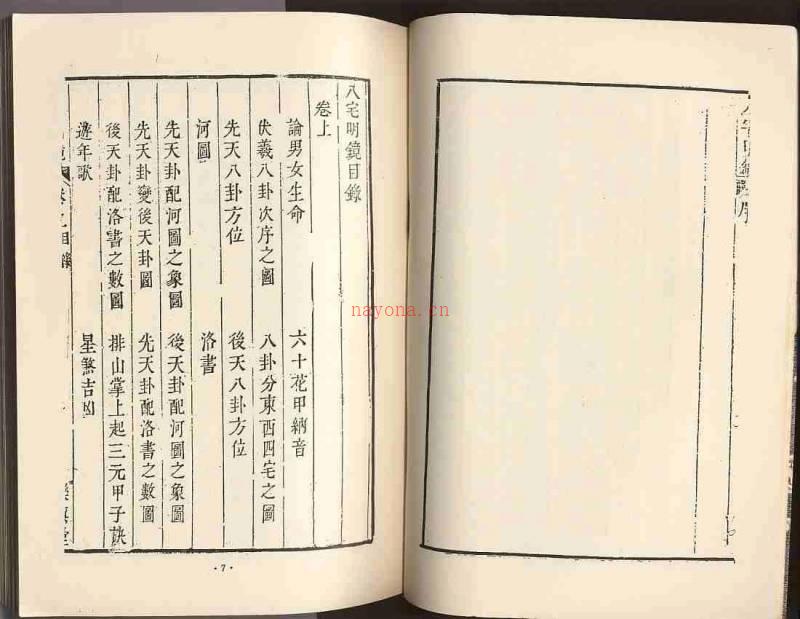 八宅明鏡目錄
卷上
論男女生命 六十花甲納音
伏羲八卦次序之圖 八卦分東西四宅之圖
先天八卦方位 後天八卦方位
河圖 洛書
先天卦配河圖之象圖 後天卦配河圖之象圖
先天卦變後天卦圖 先天卦配洛書之數圖
後天卦配洛書之數圖 排山掌上起三元甲子訣
遊年歌 星煞吉凶
鏡 卷之 目錄
·7·
序
nayona.cn